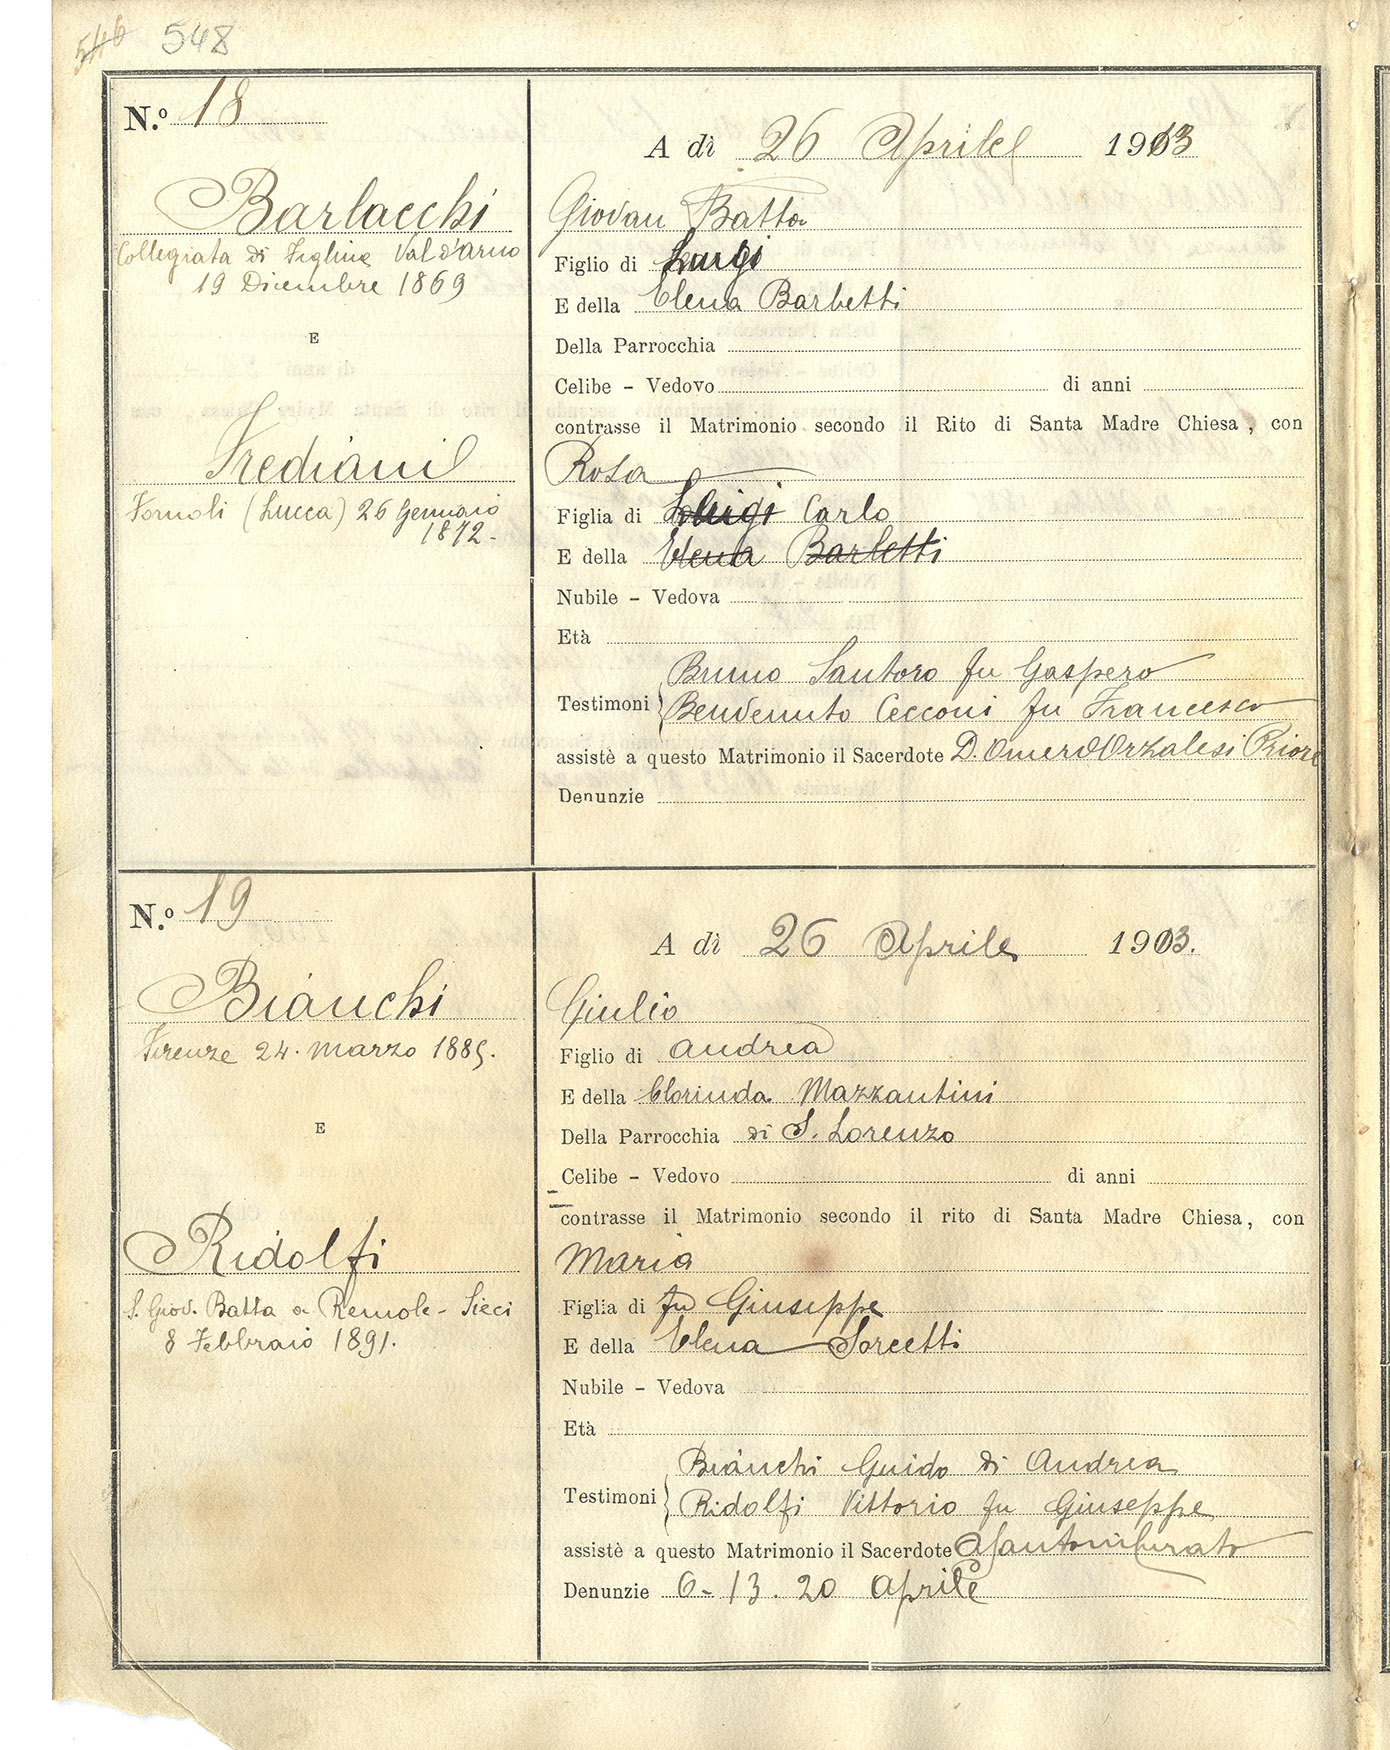 546 548
N.º 18
A dì 26 Aprile 1913
Barlacchi
Collegiata di Figline Val d'arno
19 Dicembre 1869
E
Frediani
Fornoli (Lucca) 26 Gennaio
1872-
Giovan Batta
Figlio di Luigi
E della Elena Barbetti
Della Parrocchia
Celibe - Vedovo di anni
contrasse il Matrimonio secondo il Rito di Santa Madre Chiesa, con
Rosa
Figlia di Luigi Carlo
E della Elena Barletti
Nubile - Vedova
Età
Bruno Santoro fu Gaspero
Testimoni Benvenuto Cecconi fu Francesco
assistè a questo Matrimonio il Sacerdote D. Omero Orzalesi Priore
Denunzie
N.º 19
A dì 26 Aprile 1913.
Bianchi
Firenze 24. Marzo 1885.
E
Ridolfi
S. Giov. Batta a Remole - Sieci
8 Febbraio 1891.
Giulio
Figlio di Andrea
E della Clorinda Mazzantini
Della Parrocchia di S. Lorenzo
Celibe - Vedovo di anni
contrasse il Matrimonio secondo il rito di Santa Madre Chiesa, con
Maria
Figlia di fu Giuseppe
E della Elena Sorcetti
Nubile - Vedova
Età
Bianchi Guido di Andrea
Testimoni Ridolfi Vittorio fu Giuseppe
assistè a questo Matrimonio il Sacerdote Curato
Denunzie 6- 13. 20 Aprile